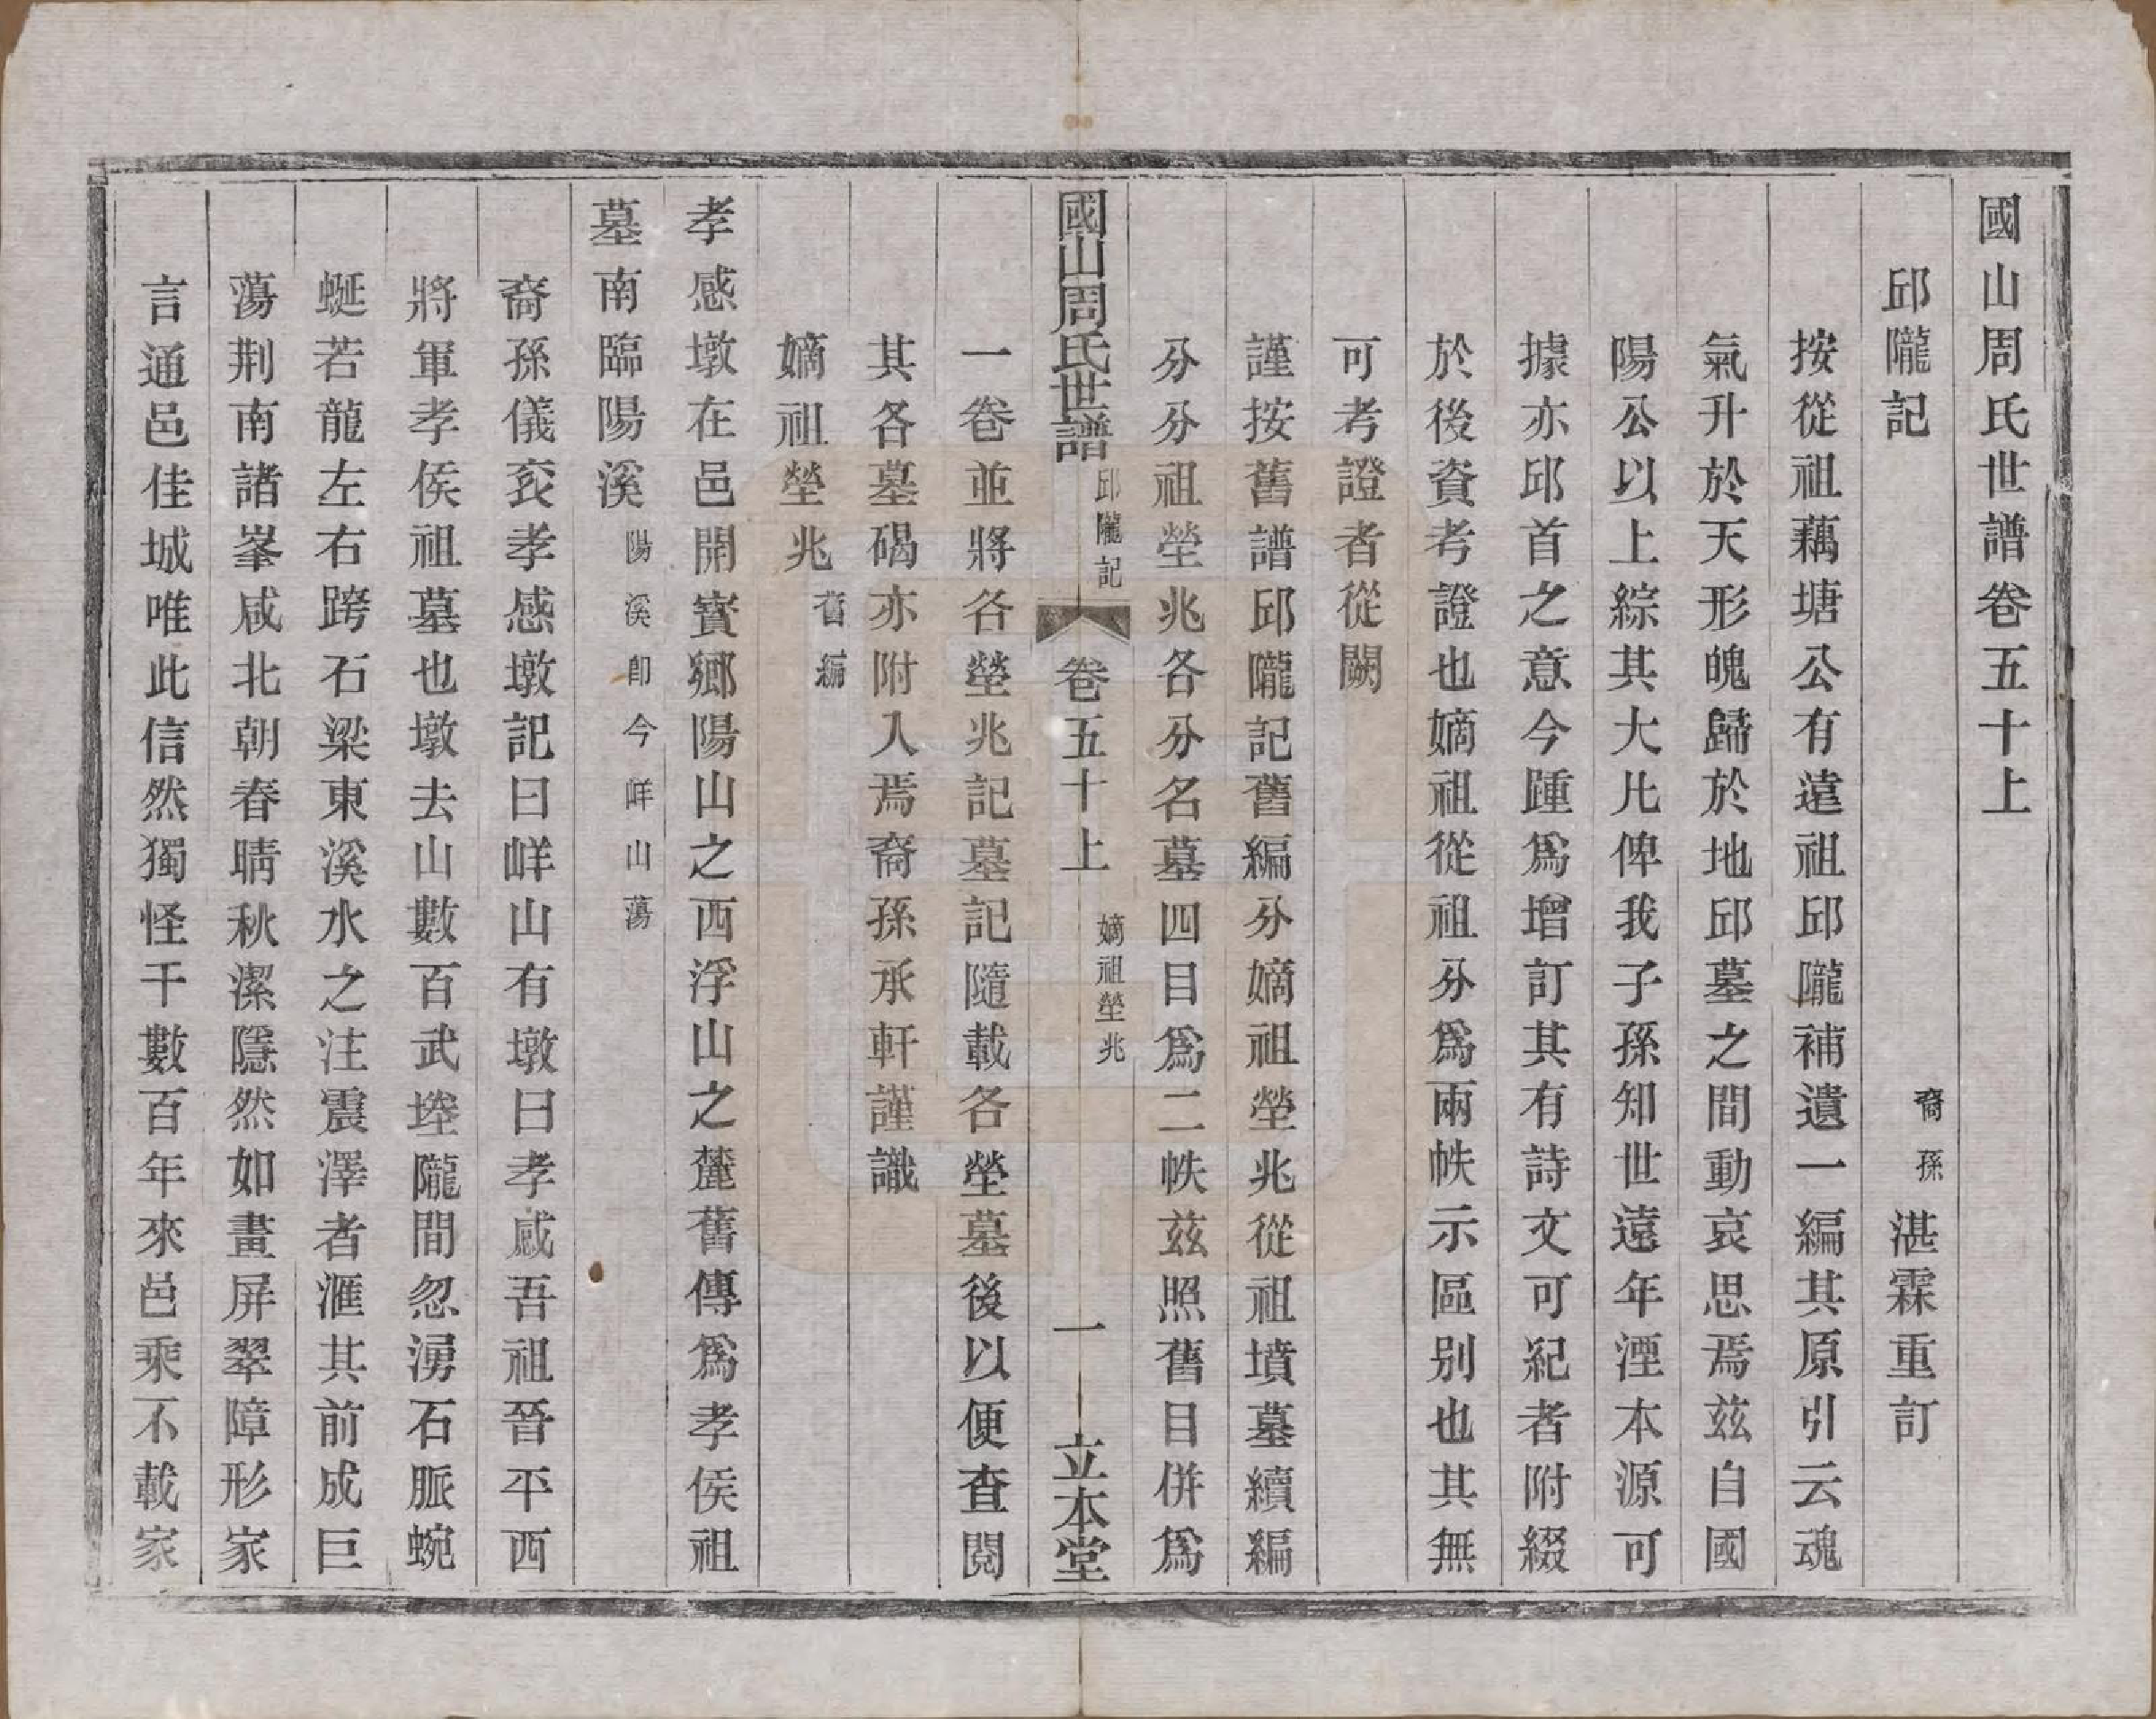 國山周氏世譜卷五十上
邱隴記　裔孫湛霖重訂
按從祖藕塘公有遠祖邱隴補遺一編其原引云魂
氣升於天形魄歸於地邱墓之間動哀思焉茲自國
陽公以上綜其大凡俾我子孫知世遠年湮本源可
據亦邱首之意今踵爲增訂其有詩文可紀者附綴
於後資考證也嫡祖從祖分爲兩帙示區别也其無
可考證者從闕
謹按舊譜邱隴記舊編分嫡祖塋兆從祖墳墓續編
分分祖塋兆各分名墓四目爲二帙茲照舊目併爲
國山周氏世譜　邱隴記　卷五十上　嫡祖塋兆　一　立本堂
一卷並將各塋兆記墓記隨載各塋墓後以便查閱
其各墓碣亦附入焉裔孫承軒謹識
嫡祖塋兆　舊編
孝感墩在邑開寶鄉陽山之西浮山之麓舊傳爲孝侯祖
墓南臨陽溪　陽溪卽今𡶴山蕩
裔孫儀𡖖孝感墩記曰𡶴山有墩曰孝感吾祖晉平西
將軍孝侯祖墓也墩去山數百武塋隴間忽湧石脈蜿
蜒若龍左右跨石梁東溪水之注震澤者滙其前成巨
蕩荆南諸峯咸北朝春晴秋潔隱然如畫屏翠障形家
言通邑佳城唯此信然獨怪千數百年來邑乘不載家